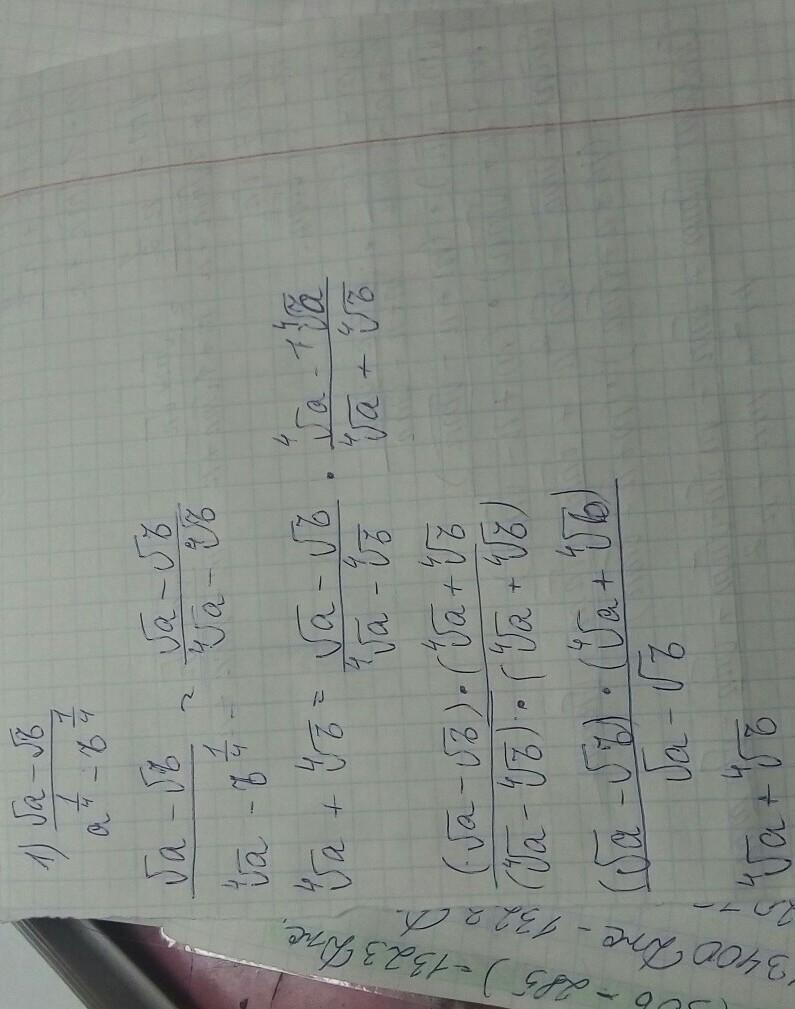 1) (√a - √b)/(a^(1/4) - b^(1/4))
(√a - √b)/(⁴√a - b^(1/4)) = (√a - √b)/(⁴√a - ⁴√b)
⁴√a + ⁴√b = (√a - √b)/(⁴√a - ⁴√b) · (⁴√a + ⁴√b)/(⁴√a + ⁴√b)
((√a - √b) · (⁴√a + ⁴√b)/((⁴√a - ⁴√b) · (⁴√a + ⁴√b)
((√a - √b) · (⁴√a + ⁴√b))/(√a - √b)
⁴√a + ⁴√b
3400 Дж - 1322
- 285) = 1323 Дж